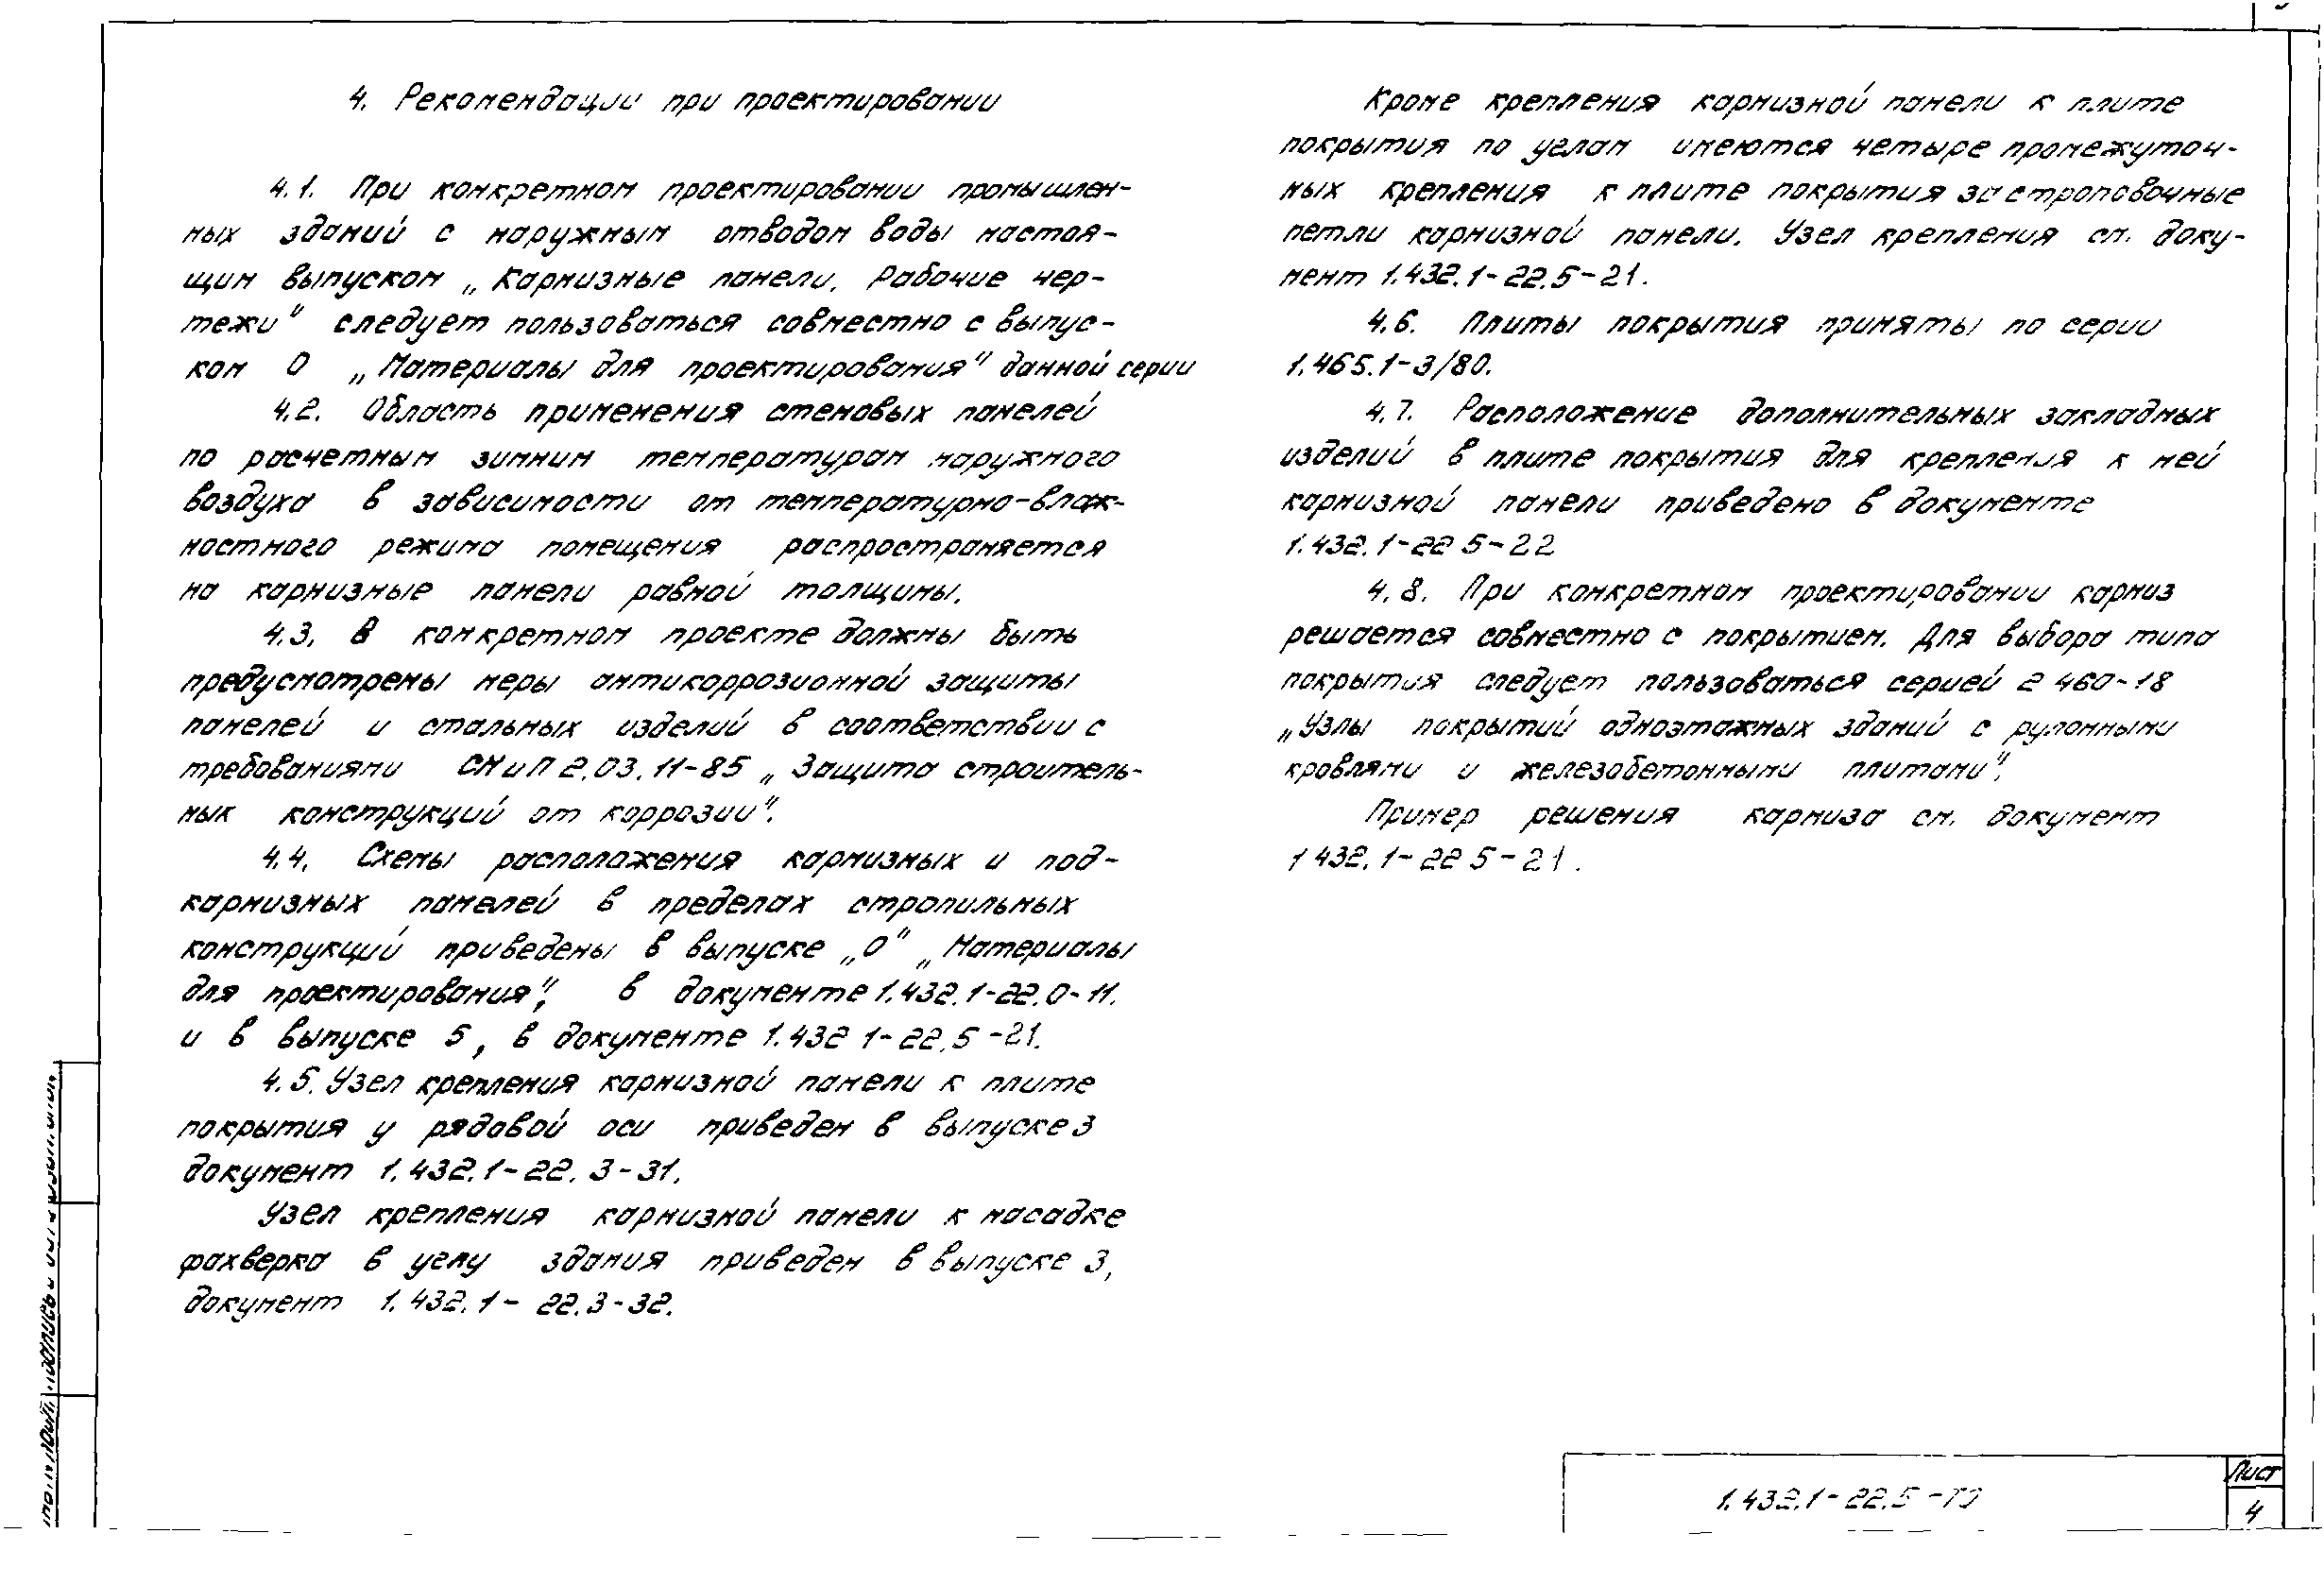 4. Рекомендации при проектировании
4.1. При конкретном проектировании промышлен-
ных зданий с наружным отводом воды настоя-
щим выпуском „Карнизные панели. Рабочие чер-
тежи" следует пользоваться совместно с выпус-
ком 0 „Материалы для проектирования" данной серии
4.2. Область применения стеновых панелей
по расчетным зимним температурам наружного
воздуха в зависимости от температурно-влаж-
ностного режима помещения распространяется
на карнизные панели равной толщины.
4.3. В конкретном проекте должны быть
предусмотрены меры антикоррозионной защиты
панелей и стальных изделий в соответствии с
требованиями СНиП 2.03.11-85 „Защита строитель-
ных конструкций от коррозии".
4.4. Схемы расположения карнизных и под-
карнизных панелей в пределах стропильных
конструкций приведены в выпуске „0" „Материалы
для проектирования", в документе 1.432.1-22.0-11.
и в выпуске 5, в документе 1.432 1-22.5-21.
4.5. Узел крепления карнизной панели к плите
покрытия у рядовой оси приведен в выпуске 3
документ 1.432.1-22.3-31.
Узел крепления карнизной панели к насадке
фахверка в углу здания приведен в выпуске 3,
документ 1.432.1-22.3-32.
Кроме крепления карнизной панели к плите
покрытия по углам имеются четыре промежуточ-
ных крепления к плите покрытия за строповочные
петли карнизной панели. Узел крепления см. доку-
мент 1.432.1-22.5-21.
4.6. Плиты покрытия приняты по серии
1.465.1-3/80.
4.7. Расположение дополнительных закладных
изделий в плите покрытия для крепления к ней
карнизной панели приведено в документе
1.432.1-22 5-22
4.8. При конкретном проектировании карниз
решается совместно с покрытием. Для выбора типа
покрытия следует пользоваться серией 2 460-18
„Узлы покрытий одноэтажных зданий с рулонными
кровлями и железобетонными плитами".
Пример решения карниза см. документ
1 432.1-22 5-21.
1.432.1-22.5-ТО
Лист
4